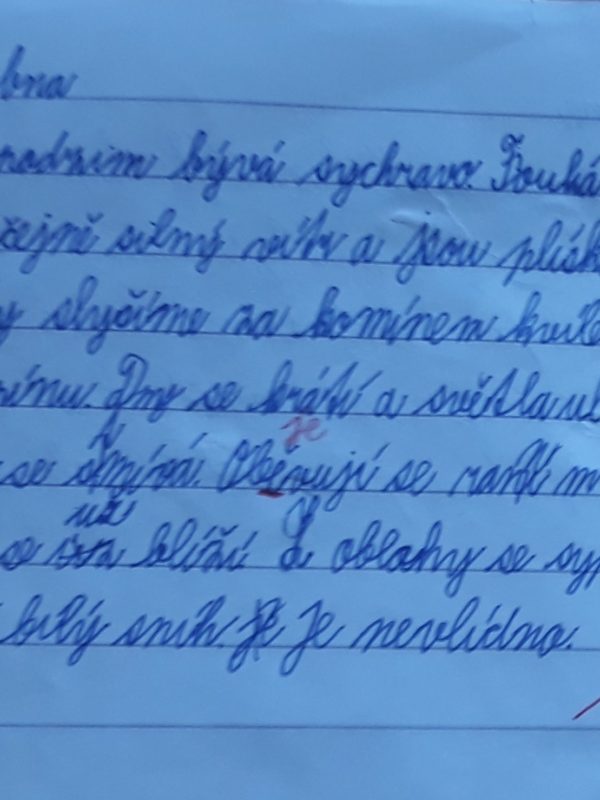 bna
radzim bývá sychravo. Fouká
čejně silný vítr a jsou plísk
y slyčíme za komínem kvíle
nímu. Dny se krátí a světla ub
je
se stmívá. Oběvují se ranní m
už
se blíží Z oblahy se syp
bílý sníh. Je nevlídno.